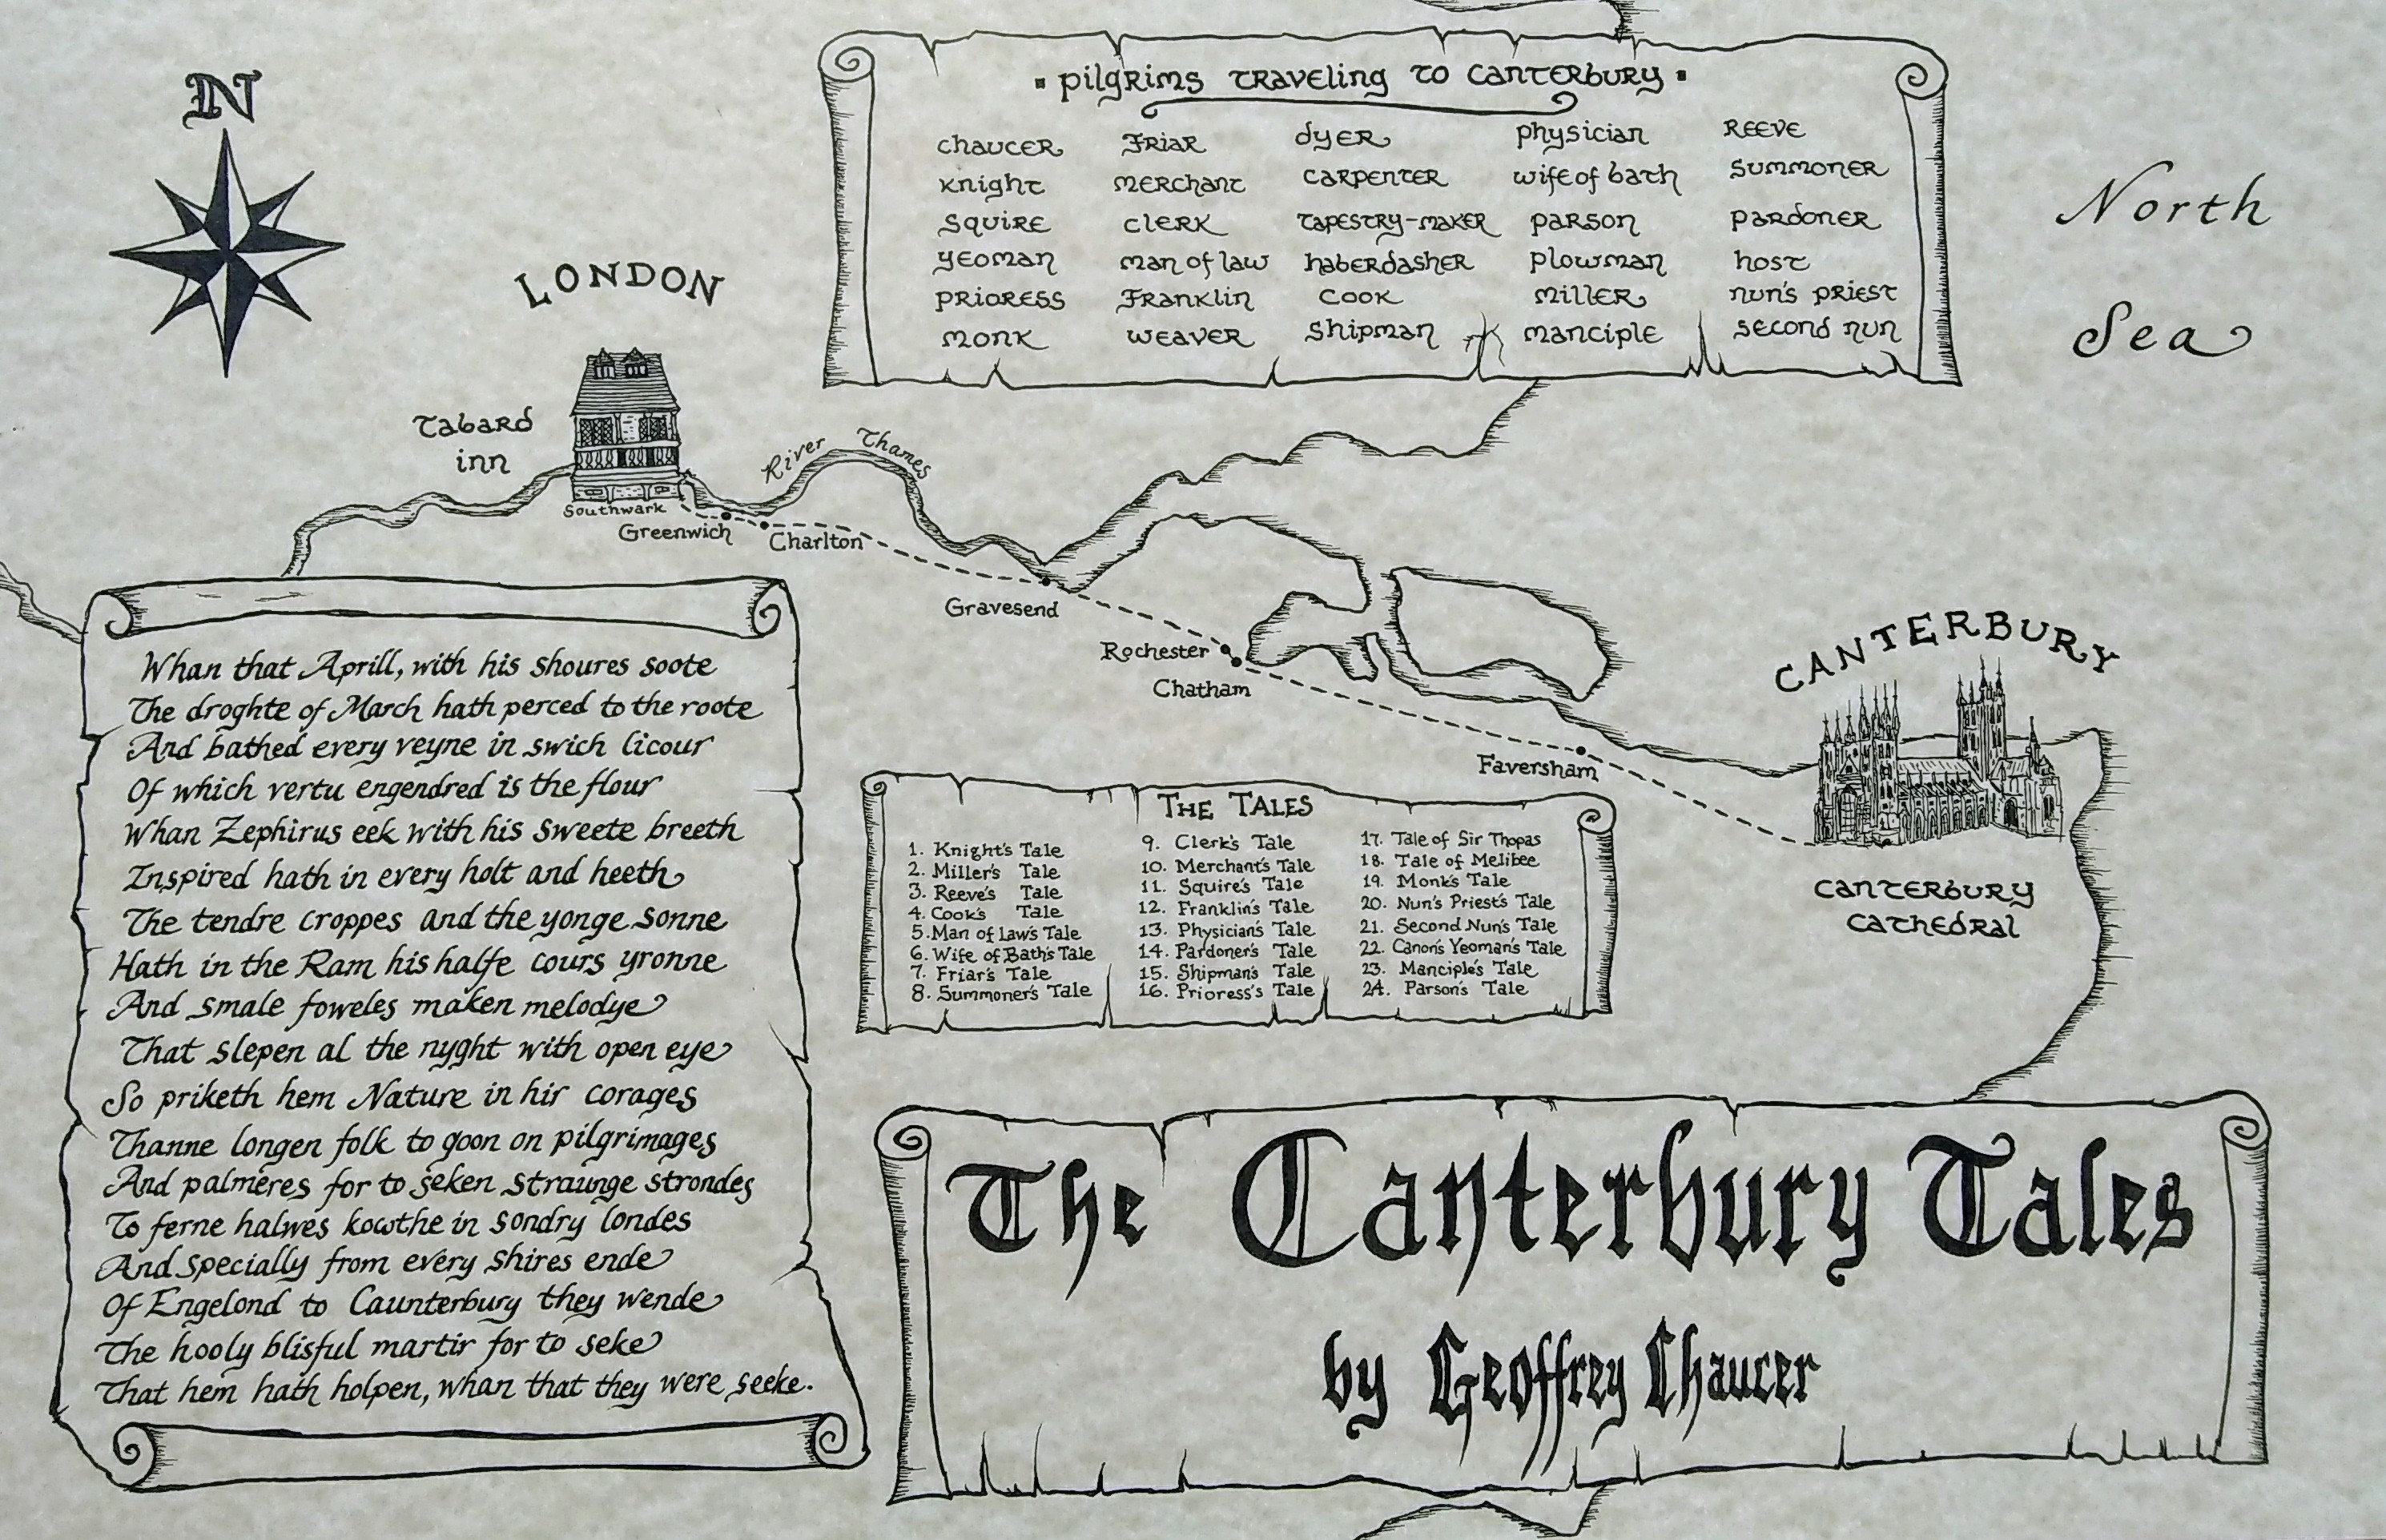 N
▪ pilgrims traveling to canterbury ▪
chaucer
knight
squire
yeoman
prioress
monk
friar
merchant
clerk
man of law
franklin
weaver
dyer
carpenter
tapestry-maker
haberdasher
cook
shipman
physician
wife of bath
parson
plowman
miller
manciple
reeve
summoner
pardoner
host
nun's priest
second nun
North
Sea
LONDON
Tabard
inn
Southwark
River Thames
Greenwich
Charlton
Gravesend
Rochester
Chatham
Faversham
CANTERBURY
canterbury
cathedral
Whan that Aprill, with his shoures soote
The droghte of March hath perced to the roote
And bathed every veyne in swich licour
Of which vertu engendred is the flour
Whan Zephirus eek with his sweete breeth
Inspired hath in every holt and heeth
The tendre croppes and the yonge sonne
Hath in the Ram his halfe cours yronne
And smale foweles maken melodye
That slepen al the nyght with open eye
So priketh hem Nature in hir corages
Thanne longen folk to goon on pilgrimages
And palmeres for to seken straunge strondes
To ferne halwes kowthe in sondry londes
And specially from every shires ende
Of Engelond to Caunterbury they wende
The hooly blisful martir for to seke
That hem hath holpen, whan that they were seeke.
THE TALES
1. Knight's Tale
2. Miller's Tale
3. Reeve's Tale
4. Cook's Tale
5. Man of Law's Tale
6. Wife of Bath's Tale
7. Friar's Tale
8. Summoner's Tale
9. Clerk's Tale
10. Merchant's Tale
11. Squire's Tale
12. Franklin's Tale
13. Physician's Tale
14. Pardoner's Tale
15. Shipman's Tale
16. Prioress's Tale
17. Tale of Sir Thopas
18. Tale of Melibee
19. Monk's Tale
20. Nun's Priest's Tale
21. Second Nun's Tale
22. Canon's Yeoman's Tale
23. Manciple's Tale
24. Parson's Tale
The Canterbury Tales
by Geoffrey Chaucer